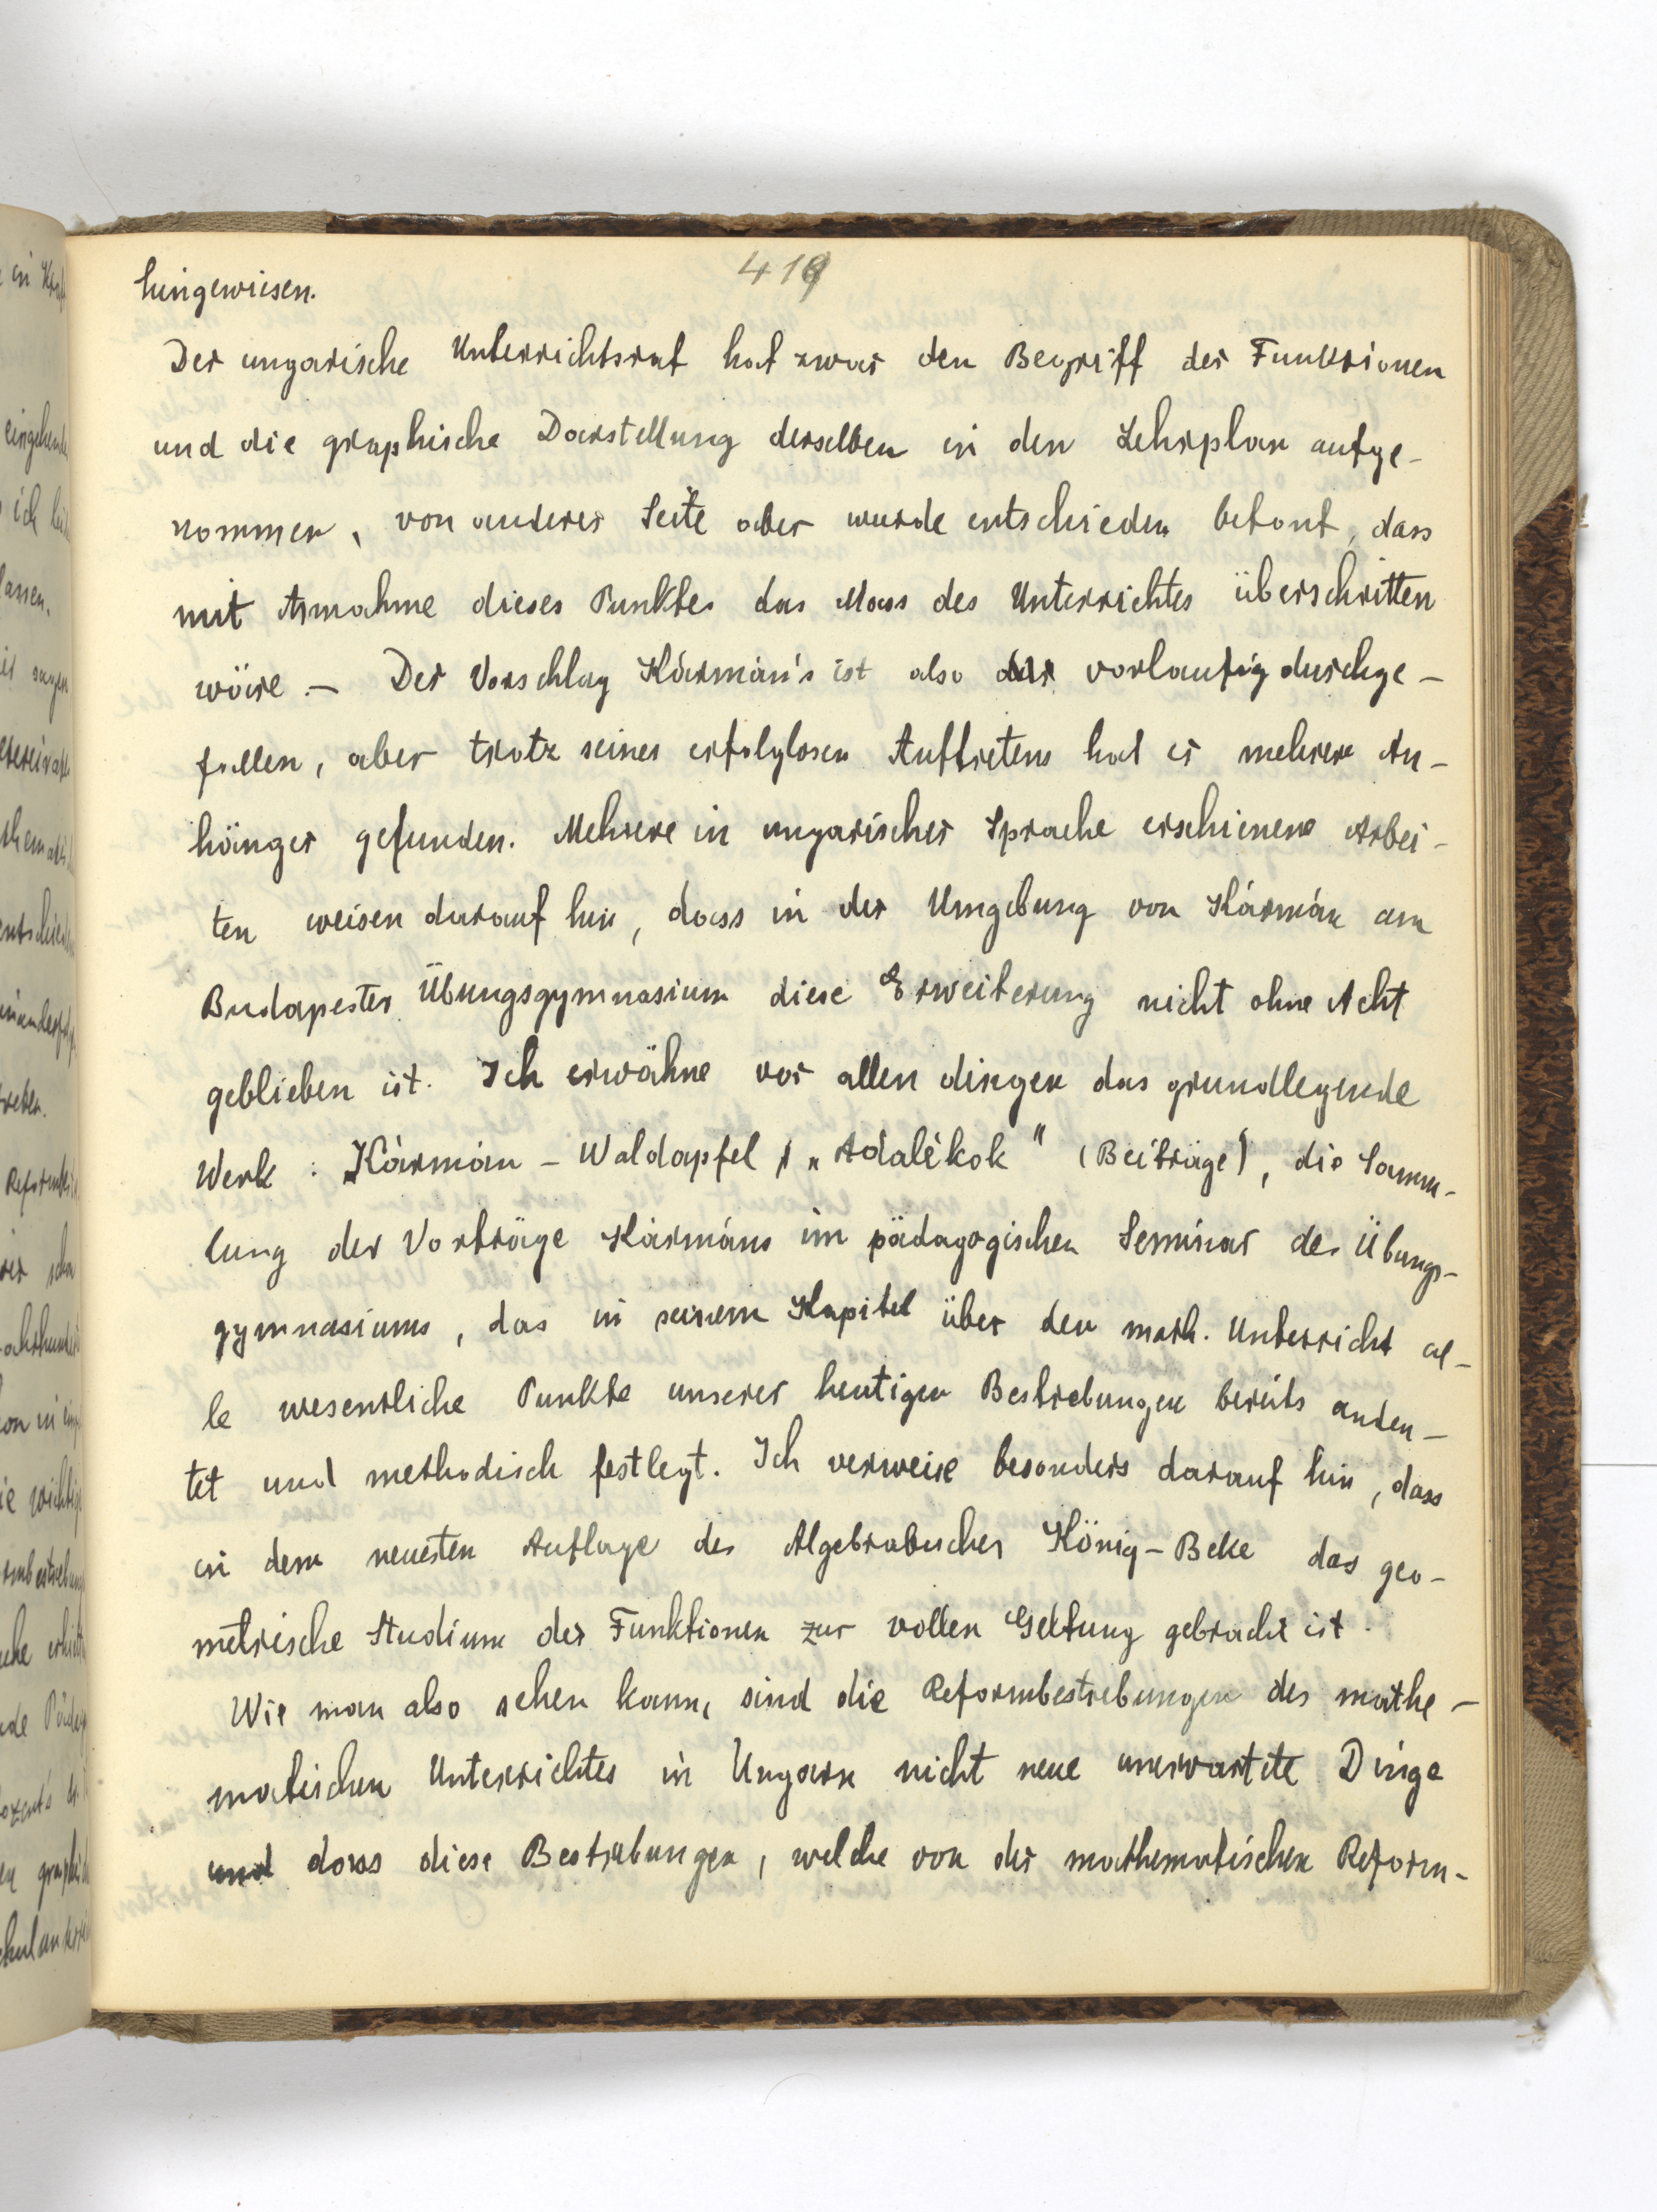 419
hingewiesen.
Der ungarische Unterrichtsrat hat zwar den Begriff der Funktionen
und die graphische Darstellung derselben in den Lehrplan aufge-
nommen, von anderer Seite aber wurde entschieden betont, dass
mit Annahme dieses Punktes das Mass des Unterrichtes überschritten
wäre. — Der Vorschlag Kármán's ist also vorlaufig durchge-
fallen, aber trotz seines erfolglosen Auftretens hat er mehrere An-
hänger gefunden. Mehrere in ungarischer Sprache erschienene Arbei-
ten weisen darauf hin, dass in der Umgebung von Kármán am
Budapester Übungsgymnasium diese Erweiterung nicht ohne Acht
geblieben ist. Ich erwähne vor allen dingen das grundlegende
Werk: Kármán - Waldapfel, „Adalékok" (Beiträge), die Samm-
lung der Vorträge Kármáns im pädagogischen Seminar des Übungs-
gymnasiums, das in seinem Kapitel über den math. Unterricht al-
le wesentliche Punkte unserer heutigen Bestrebungen bereits andeu-
tet und methodisch festlegt. Ich verweise besonders darauf hin, dass
in dem neuesten Auflage des Algebrabuches König-Beke das geo-
metrische Studium der Funktionen zur vollen Geltung gebracht ist.
Wie man also sehen kann, sind die Reformbestrebungen des mathe-
matischen Unterrichtes in Ungarn nicht neue unerwartete Dinge
und dass diese Bestrebungen, welche von der mathematischen Reform-